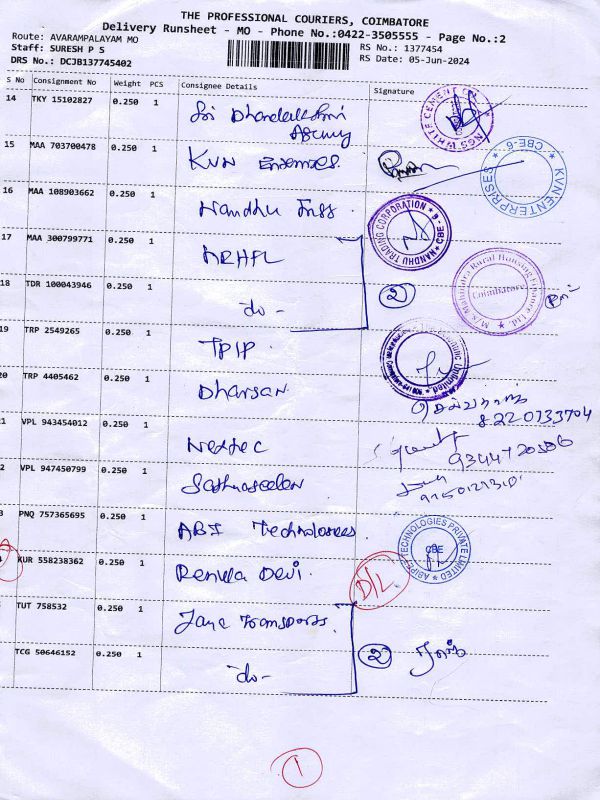 THE PROFESSIONAL COURIERS, COIMBATORE
Delivery Runsheet - MO - Phone No.:0422-3505555 - Page No.:2
Route: AVARAMPALAYAM MO
Staff: SURESH P S
DRS No.: DCJB137745402
RS No.: 1377454
RS Date: 05-Jun-2024
S No Consignment No Weight PCS Consignee Details Signature
14 TKY 15102827 0.250 1 Sri Dhandalakshmi
Agency
15 MAA 703700478 0.250 1 KVN Enterprises.
KVN ENTERPRISES * CBE-6 *
16 MAA 108903662 0.250 1 Nandhu Trss.
NANDHU TRADING CORPORATION * CBE - 9
17 MAA 300799771 0.250 1 MRHFL
18 TDR 100043946 0.250 1 -do- 2
M/s Mahindra Rural Housing Finance Ltd. Coimbatore
19 TRP 2549265 0.250 1 TPIP
20 TRP 4405462 0.250 1 Dharsan
8220733704
1 VPL 943454012 0.250 1 Nextec
2 VPL 947450799 0.250 1
3 PNQ 757365695 0.250 1 ABI Technologies
TECHNOLOGIES PRIVATE LIMITED CBE
KUR 558238362 0.250 1 Renuka Devi. D/L
TUT 758532 0.250 1 Jaya Transports.
TCG 50646152 0.250 1 -do- 2
1